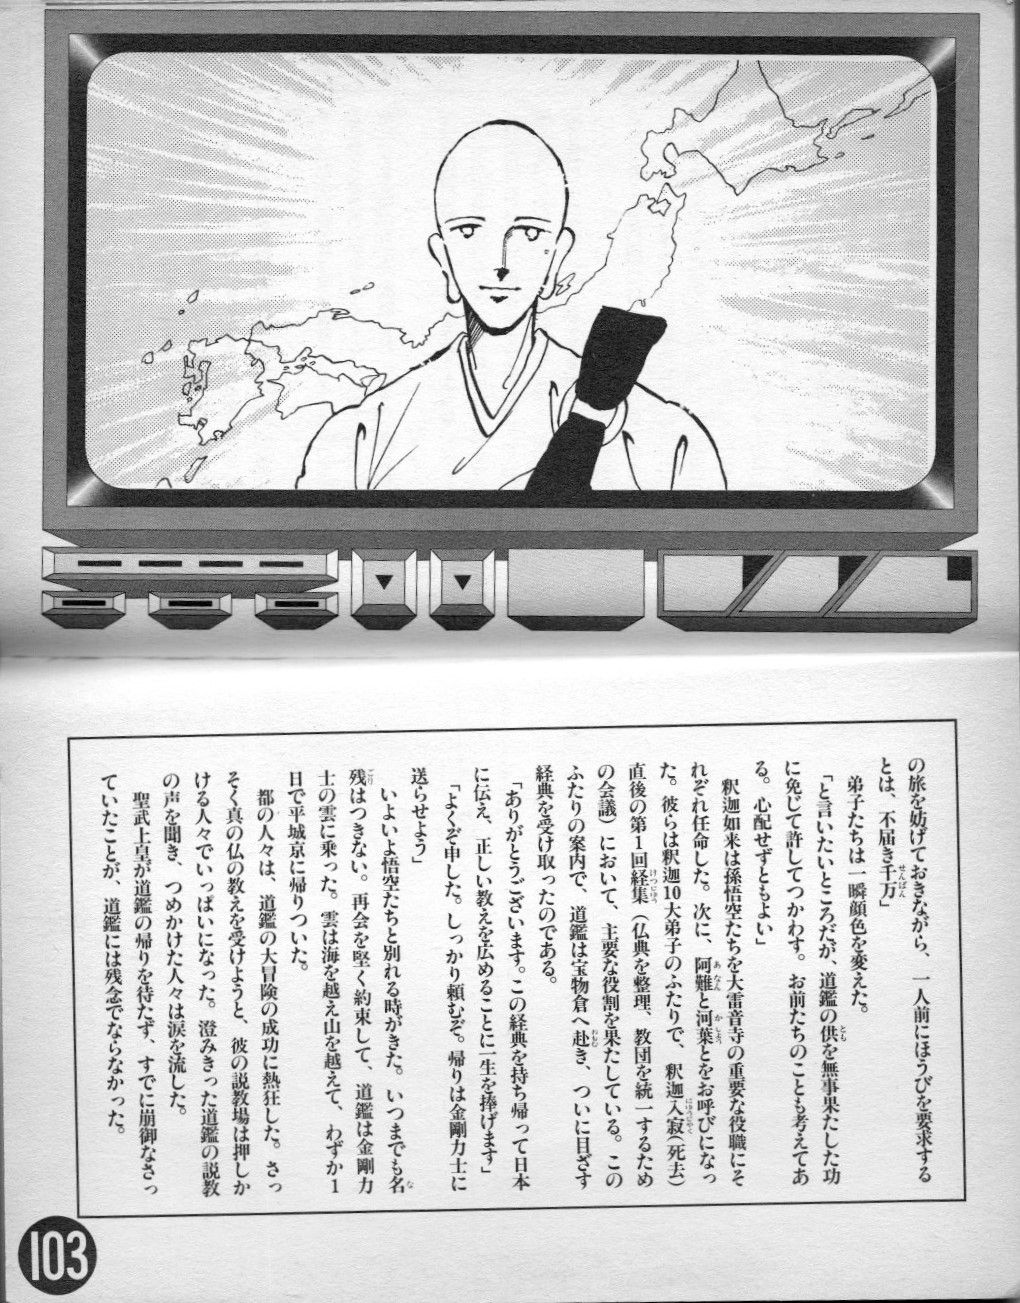 の旅を妨げておきながら、一人前にほうびを要求する
とは、不届き千万」
弟子たちは一瞬顔色を変えた。
「と言いたいところだが、道鑑の供を無事果たした功
に免じて許してつかわす。お前たちのことも考えてあ
る。心配せずともよい」
釈迦如来は孫悟空たちを大雷音寺の重要な役職にそ
れぞれ任命した。次に、阿難と河葉とをお呼びになっ
た。彼らは釈迦10大弟子のふたりで、釈迦入寂(死去)
直後の第1回経集(仏典を整理、教団を統一するため
の会議)において、主要な役割を果たしている。この
ふたりの案内で、道鑑は宝物倉へ赴き、ついに目ざす
経典を受け取ったのである。
「ありがとうございます。この経典を持ち帰って日本
に伝え、正しい教えを広めることに一生を捧げます」
「よくぞ申した。しっかり頼むぞ。帰りは金剛力士に
送らせよう」
いよいよ悟空たちと別れる時がきた。いつまでも名
残はつきない。再会を堅く約束して、道鑑は金剛力
士の雲に乗った。雲は海を越え山を越えて、わずか1
日で平城京に帰りついた。
都の人々は、道鑑の大冒険の成功に熱狂した。さっ
そく真の仏の教えを受けようと、彼の説教場は押しか
ける人々でいっぱいになった。澄みきった道鑑の説教
の声を聞き、つめかけた人々は涙を流した。
聖武上皇が道鑑の帰りを待たず、すでに崩御なさっ
ていたことが、道鑑には残念でならなかった。
103